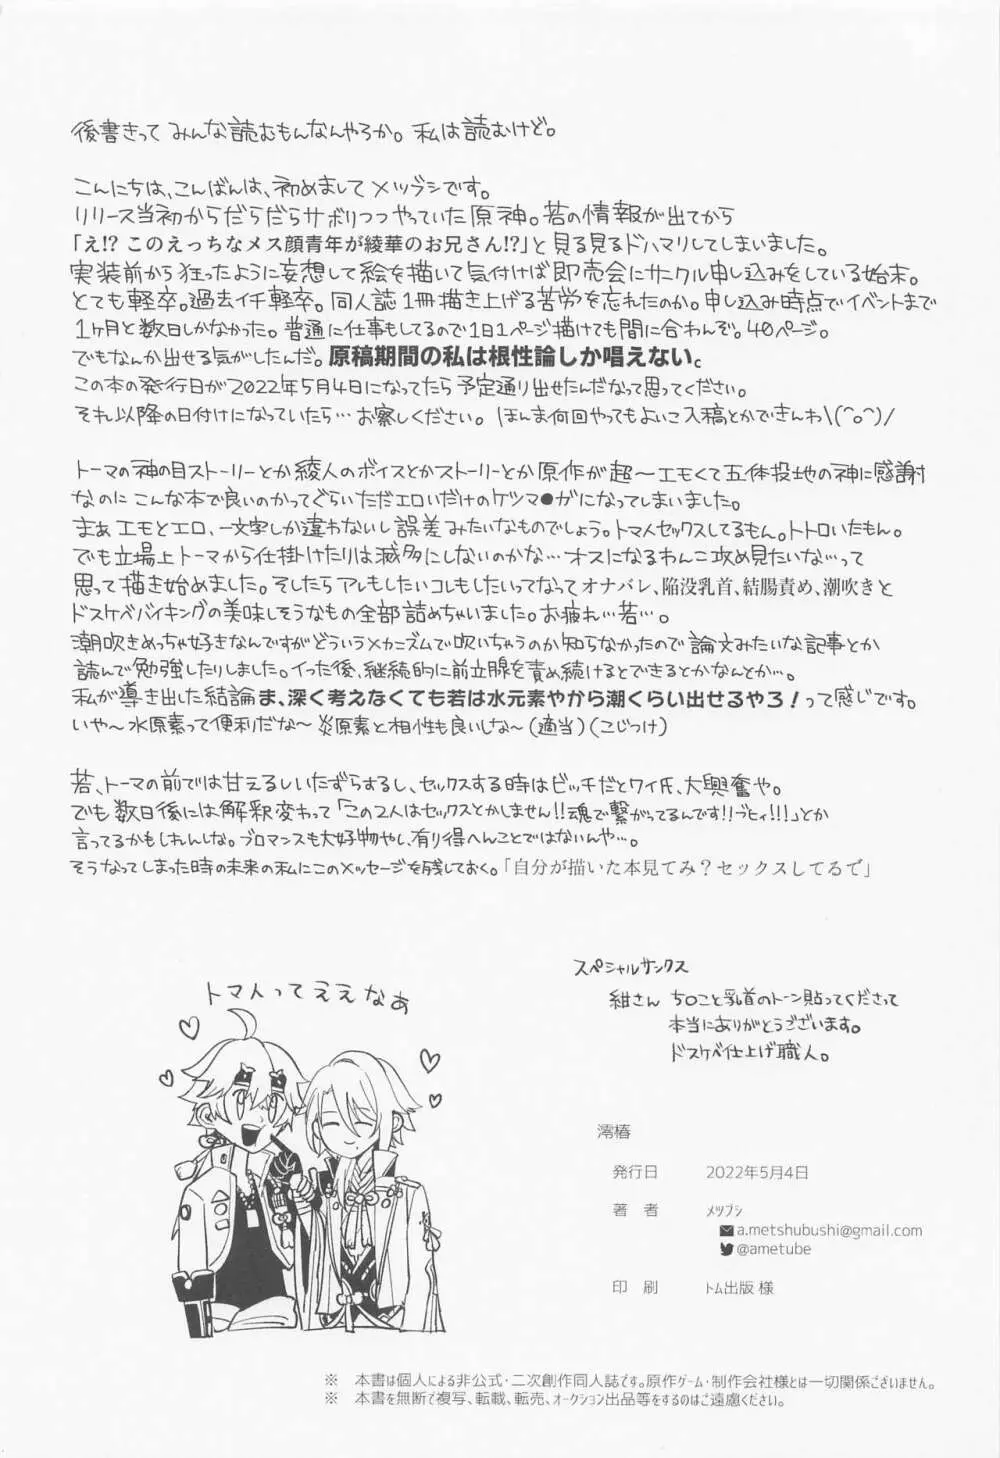 後書きって みんな読むもんなんやろか。私は読むけど。
こんにちは、こんばんは、初めまして メツブシです。
リリース当初からだらだらサボりつつやっていた原神。若の情報が出てから
「え!? このえっちなメス顔青年が綾華のお兄さん!?」と見る見るドハマリしてしまいました。
実装前から狂ったように妄想して絵を描いて気付けば即売会にサークル申し込みをしている始末。
とても軽卒。過去イチ軽卒。同人誌1冊描き上げる苦労を忘れたのか。申し込み時点でイベントまで
1ヶ月と数日しかなかった。普通に仕事もしてるので1日1ページ描けても間に合わんぞ。40ページ。
でもなんか出せる気がしたんだ。原稿期間の私は根性論しか唱えない。
この本の発行日が2022年5月4日になってたら予定通り出せたんだなって思ってください。
それ以降の日付けになっていたら…お察しください。ほんま何回やってもよいこ入稿とかできんわ\(^o^)/
トーマの神の目ストーリーとか綾人のボイスとかストーリーとか原作が超〜エモくて五体投地の神に感謝
なのにこんな本で良いのかってぐらいただエロいだけのケツマ●ガになってしまいました。
まぁエモとエロ、一文字しか違わないし誤差みたいなものでしょう。トマ人セックスしてるもん。トトロいたもん。
でも立場上トーマから仕掛けたりは滅多にしないのかな…オスになるわんこ攻め見たいな…って
思って描き始めました。そしたらアレもしたいコレもしたいってなってオナバレ、陥没乳首、結腸責め、潮吹きと
ドスケベバイキングの美味しそうなもの全部詰めちゃいました。お疲れ…若…。
潮吹きめっちゃ好きなんですがどういうメカニズムで吹いちゃうのか知らなかったので論文みたいな記事とか
読んで勉強したりしました。イった後、継続的に前立腺を責め続けるとできるとかなんとか…。
私が導き出した結論ま、深く考えなくても若は水元素やから潮くらい出せるやろ！って感じです。
いや〜水原素って便利だな〜炎原素と相性も良いしな〜(適当)(こじつけ)
若、トーマの前では甘えるしいたずらするし、セックスする時はビッチだとワイ氏、大興奮や。
でも数日後には解釈変わって「この2人はセックスとかしません!!魂で繋がってるんです!!ブヒィ!!!」とか
言ってるかもしれんしな。ブロマンスも大好物やし、有り得へんことではないんや…。
そうなってしまった時の未来の私にこのメッセージを残しておく。「自分が描いた本見てみ？セックスしてるで」
スペシャルサンクス
紺さん ち○こと乳首のトーン貼ってくださって
本当にありがとうございます。
ドスケベ仕上げ職人。
トマ人ってええなぁ
澪椿
発行日 2022年5月4日
著 者 メツブシ
a.metshubushi@gmail.com
@ametube
印 刷 トム出版 様
※ 本書は個人による非公式・二次創作同人誌です。原作ゲーム・制作会社様とは一切関係ございません。
※ 本書を無断で複写、転載、転売、オークション出品等をするのはご遠慮ください。